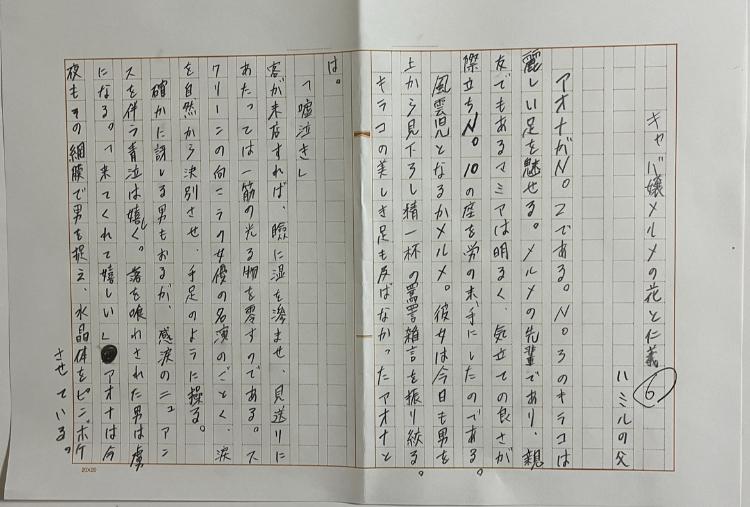 キャバ嬢メルメの花と仁義 ⑥
ハミルの父
アオナがN。2である。N。3のキラコは
麗しい足を魅せる。メルメの先輩であり、親
友でもあるマミアは明るく、気立ての良さが
際立ちN。10の座を労の末、手にしたのである。
風雲児となるかメルメ。彼女は今日も男を
上から見下ろし精一杯の罵詈雑言を振り絞る。
キラコの美しき足も及ばなかったアオナと
は。
「嘘泣き」
客が来店すれば、瞼に湿を滲ませ、見送りに
あたっては一筋の光る物を零すのである。ス
クリーンの向こうの女優の名演のごとく、涙
を自然から決別させ、手足のように操る。
確かに訝しる男もおるが、感涙のニュアン
スを伴う青泣は嬉しく。毒を喰わされた男は虜
になる。「来てくれて嬉しい」アオナは今
夜もその網膜で男を捉え、水晶体をピンボケ
させている。
20×20